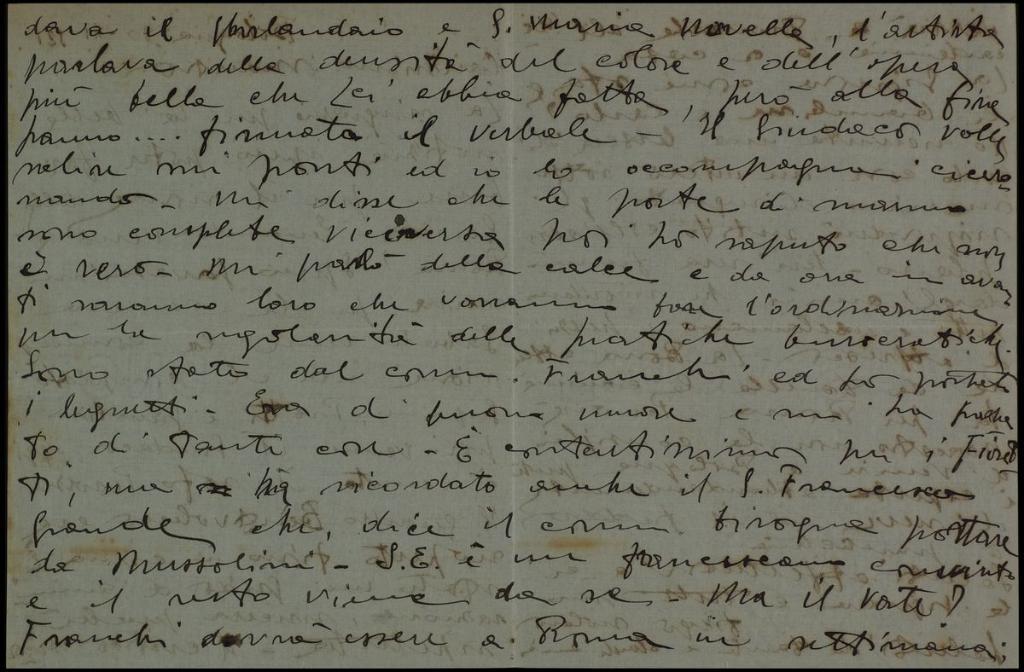 dava il Ghirlandaio e S. Maria Novella, l'artista
parlava della densità del colore e dell'opera
più bella che Lei abbia fatta, però alla fine
hanno.... firmato il verbale - Il Sindaco volle
salire sui ponti ed io lo accompagnai cicero-
nando - Mi disse che le porte di marmo
sono complete viceversa poi ho saputo che non
è vero - Mi parlò della calce e da ora in avan
ti saranno loro che vorranno fare l'ordinazione
per la regolarità delle pratiche burocratiche.
Sono stato dal comm. Franchi ed ho portato
i legnetti - Era di buon umore e mi ha parla
to di tante cose - È contentissimo per i Fioret
ti, ma ha ricordato anche il S. Francesco
grande che, dice il comm bisogna portare
da Mussolini - S.E. è un francescano convinto
e il resto viene da sé - Ma il Vate?
Franchi dovrà essere a Roma in settimana;